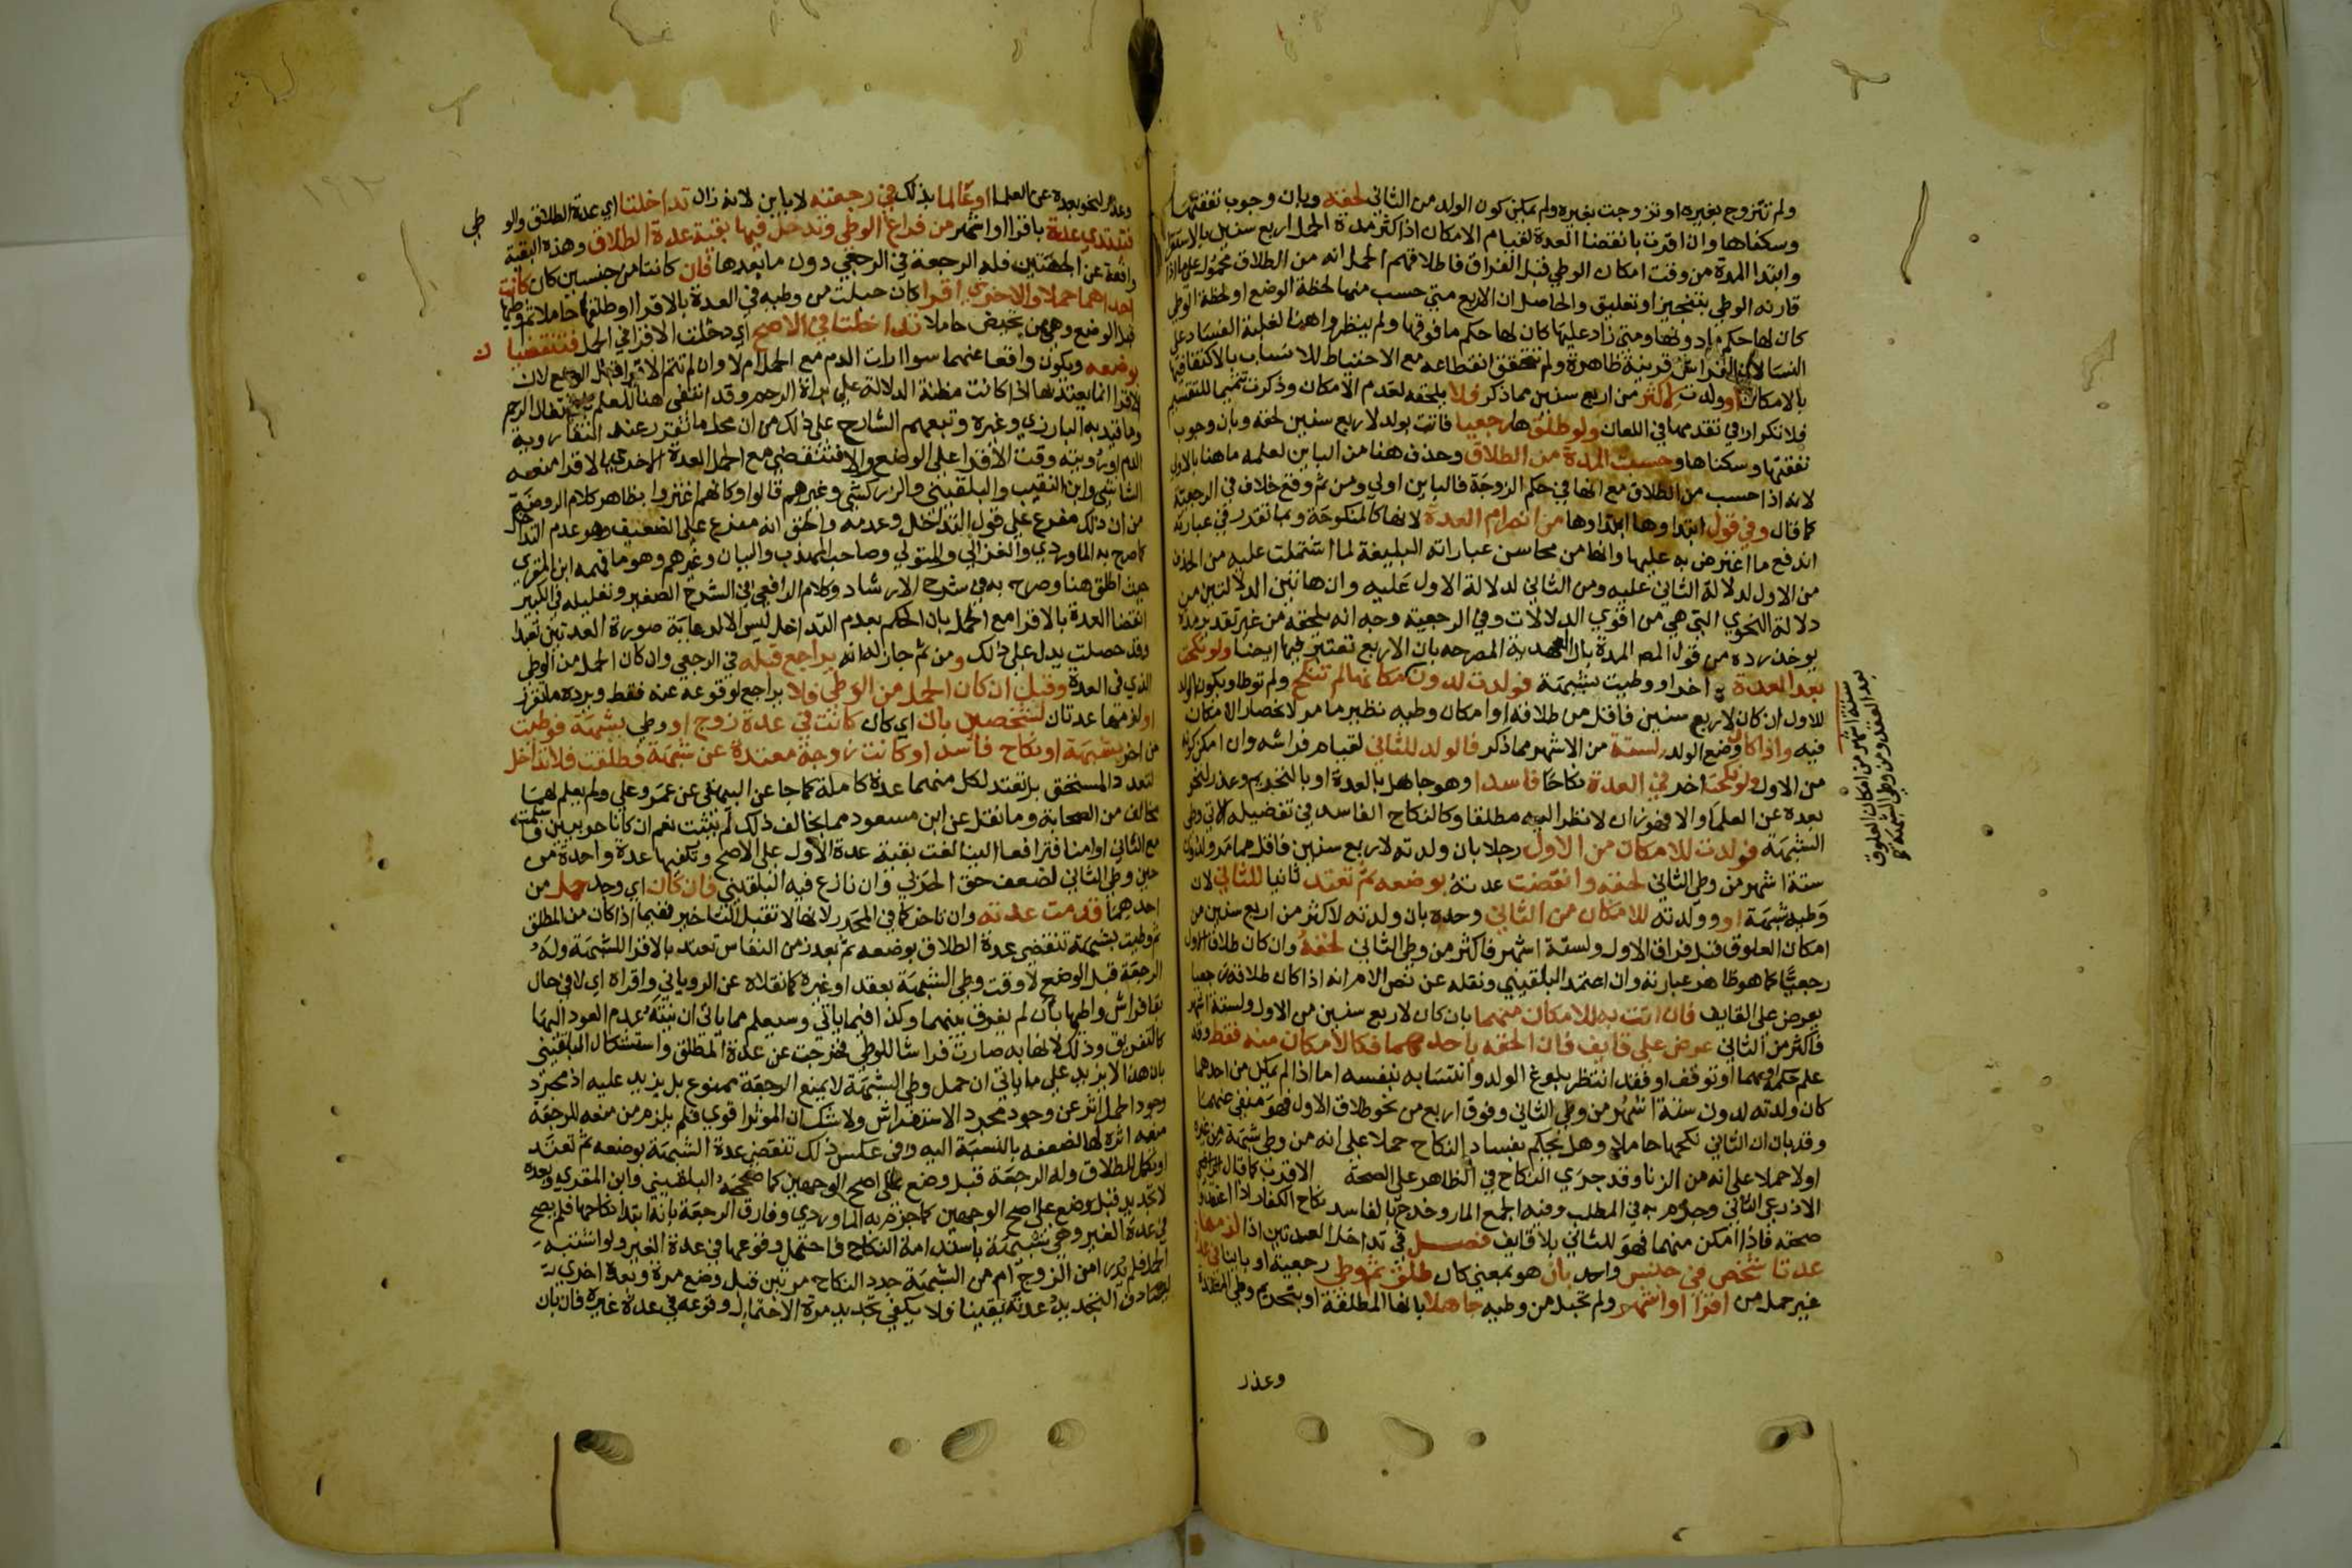 ولم تتزوج بغيره او تزوجت بغيره ولم يمكن كون الولد من الثاني لحقه وبان وجوب نفقتها
وسكناها وان اقرت بانقضا العدة لقيام الامكان اذ اكثر مدة الحمل اربع سنين بالاستقرا
وابتدا المدة من وقت امكان الوطي قبل الفراق فاطلاقهم الحمل انه من الطلاق محمول على ما اذا
قارنه الوطي بتنجيز او تعليق والحاصل ان الاربع متي حسب منها لحظة الوضع او لحظة الوطي
كان لها حكم ما دونها ومتى زاد عليها كان لها حكم ما فوقها ولم ينظروا هنا لغلبة الفساد على
النسا لان الفراش قرينة ظاهرة ولم يتحقق انقطاعه مع الاحتياط للانساب بالاكتفا فيها
بالامكان او ولدت لاكثر من اربع سنين مما ذكر فلا يلحقه لعدم الامكان وذكرت تتميما للتقسيم
فلا تكرار في تقدمها في اللعان ولو طلقها رجعيا فاتت بولد لاربع سنين لحقه وبان وجوب
نفقتها وسكناها وحسبت المدة من الطلاق وحذف هنا من الباين لعلمه ما هنا بالاولى
لانه اذا حسب من الطلاق مع انها في حكم الزوجة فالباين اولي ومن ثم وقع خلاف في الرجعية
كما قال وفي قول ابتداوها ابتداوها من انصرام العدة لانها كالمنكوحة وبما تقدر في عبارته
اندفع ما اعترض به عليها وانها من محاسن عباراته البليغة لما اشتملت عليه من الحذف
من الاول لدلالة الثاني عليه ومن الثاني لدلالة الاول عليه وان هاتين الدلالتين من
دلالة الفحوي التي هي من اقوي الدلالات وفي الرجعية وجه انه يلحقه من غير تقدير مدة
يوخذ رده من قول المص المدة بال العهدية المصرحه بان الاربع تعتبر فيها ايضا ولو نكحت
بعد العدة اخر او وطيت بشبهة فولدت لدون ستة اشهر فكانها لم تنكح ولم توطا ويكون الولد
للاول ان كان لاربع سنين فاقل من طلاقه او امكان وطيه نظير ما مر لانحصار الامكان
فيه واذا كان وضع الولد لستة من الاشهر مما ذكر فالولد للثاني لقيام فراشه وان امكن كونه
من الاول ولو نكحت اخر في العدة نكاحا فاسدا وهو جاهل بالعدة او بالتحريم وعذر لنحو
بعده عن العلما والا فهو زان لا نظر اليه مطلقا وكالنكاح الفاسد في تفصيله الاتي وطي
الشبهة فولدت للامكان من الاول رجلا بان ولدته لاربع سنين فاقل مما مر ولدون
ستة اشهر من وطي الثاني لحقه وانقضت عدته بوضعه ثم تعتد ثانيا للثاني لان
وطيه شبهة او ولدته للامكان من الثاني وحده بان ولدته لاكثر من اربع سنين من
امكان العلوق قبل فراق الاول ولستة اشهر فاكثر من وطي الثاني لحقه وان كان طلاق الاول
رجعيا كما هو ظاهر عبارته وان اعتمد البلقيني ونقله عن نص الام انه اذا كان طلاقه رجعيا
يعرض على القايف فان اتت به للامكان منهما بان كان لاربع سنين من الاول ولستة اشهر
فاكثر من الثاني عرض على قايف فان الحقه باحدهما فكالامكان منه فقط وقد
علم حكمه او بهما او توقف او فقد انتظر بلوغ الولد وانتسابه بنفسه اما اذا لم يمكن من احدهما
كان ولدته لدون ستة اشهر من وطي الثاني وفوق اربع من نحو طلاق الاول فهو منفي عنهما
وقد بان ان الثاني نكحها حاملا وهل يحكم بفساد النكاح حملا على انه من وطي شبهة من غيره
اولا حملا على انه من الزنا وقد جري النكاح في الظاهر على الصحة الاقرب كما قال
الاذرعي الثاني وجزم به في المطلب وفيه الجمع المار وخرج بالفاسد نكاح الكفار اذا اعتقدوا
صحته فاذا امكن منهما فهو للثاني بلا قايف فصل في تداخل العدتين اذا لزمها
عدتا شخص من جنس واحد بان هو بمعني كان طلق ثم وطي رجعية او باينا في عدة
غير حمل من اقرا او اشهر ولم تحبل من وطيه جاهلا بانها المطلقة او بتحريم وطي المعتدة
وعذر
ستة اشهر من امكان العلوق
بعد العقد ومن وطي الشبهة
وعذر لنحو بعده عن العلما او عالما بذلك في رجعته لا باين لانه زان تداخلتا اي عدة الطلاق والوطي
فتبتدي عدة باقرا او اشهر من فراغ الوطي وتدخل فيها بقية عدة الطلاق وهذه البقية
واقعة عن الجهتين فله الرجعة في الرجعي دون ما بعدها فان كانتا من جنسين كان كانت
احداهما حملا والاخري اقرا كان حبلت من وطيه في العدة بالاقرا او طلقها حاملا ثم وطيها
قبل الوضع وهي من تحيض حاملا تداخلتا في الاصح اي دخلت الاقرا في الحمل فتنقضيان
بوضعه ويكون واقعا عنهما سوا ارات الدم مع الحمل ام لا وان لم تتم الاقرا قبل الوضع لان
الاقرا انما يعتد بها اذا كانت مظنة الدلالة على براة الرحم وقد انتفى هنا للعلم باشتغال الرحم
وما قيد به البارزي وغيره وتبعهم الشارح على ذلك من ان محل ما تقرر عند انتفا روية
الدم او رويته وقت الاقرا على الوضع والا فتنقضي مع الحمل العدة الاخري بالاقرا منعه
النشائي وابن النقيب والبلقيني والزركشي وغيرهم قالوا وكانهم اغتروا بظاهر كلام الروضة
من ان ذلك مفرع على قول التداخل وعدمه والحق انه مفرع على الضعيف وهو عدم التداخل
كما صرح به الماوردي والغزالي والمتولي وصاحب المهذب والبيان وغيرهم وهو ما فهمه ابن المقري
حيث اطلق هنا وصرح به في شرح الارشاد وكلام الرافعي في الشرح الصغير وتعليله في الكبير
انقضا العدة بالاقرا مع الحمل بان الحكم بعدم التداخل ليس الا لرعاية صورة العدتين تعبدا
وقد حصلت يدل على ذلك ومن ثم جاز له انه يراجع قبله في الرجعي وان كان الحمل من الوطي
الذي في العدة وقيل ان كان الحمل من الوطي فلا يراجع لوقوعه عنه فقط ويرده ما تقرر
او لزمتها عدتان لشخصين بان اي كان كانت في عدة زوج او وطي بشبهة فوطيت
من اخر بشبهة او نكاح فاسد او كانت زوجة معتدة عن شبهة فطلقت فلا تداخل
لتعدد المستحق بل تعتد لكل منهما عدة كاملة كما جا عن البيهقي عن عمر وعلي ولم يعلم لهما
مخالف من الصحابة وما نقل عن ابن مسعود مما يخالف ذلك لم يثبت نعم ان كانا حربيين
مع الثاني او امنا فترافعا الينا لغت بقية عدة الاول على الاصح وتكفيها عدة واحدة من
حين وطي الثاني لضعف حق الحربي وان نازع فيه البلقيني فان كان اي وجد حمل من
احدهما قدمت عدته وان تاخر كما في المحرر لانها لا تقبل التاخير ففيما اذا كان من المطلق
ثم وطيت بشبهة تنقضي عدة الطلاق بوضعه ثم بعد زمن النفاس تعتد بالاقرا للشبهة وله
الرجعة قبل الوضع لا وقت وطي الشبهة بعقد او غيره كما نقلاه عن الروياني واقراه اي لا في حال
بقا فراش واطيها بان لم يفرق بينهما وكذا فيما ياتي وسيعلم مما ياتي ان نيته عدم العود اليها
كالتفريق وذلك لانها به صارت فراشا للواطي فخرجت عن عدة المطلق واستشكال البلقيني
بان هذا لا يزيد على ما ياتي ان حمل وطي الشبهة لا يمنع الرجعة ممنوع بل يزيد عليه اذ مجرد
وجود الحمل اثر عن وجود مجرد الاستفراش ولا شك ان الموثر اقوي فلم يلزم من منعه للرجعة
منعه اثره لها لضعفه بالنسبة اليه وفي عكس ذلك تنقضي عدة الشبهة بوضعه ثم تعتد
او تكمل للطلاق وله الرجعة قبل وضع على اصح الوجهين كما صححه البلقيني وابن المقري وبعده
لا تجديد قبل وضع على اصح الوجهين كما جزم به الماوردي وفارق الرجعة بانه ابتدا نكاحها فلم يصح
في عدة الغير وهي شبيهة باستدامة النكاح فاحتمل وقوعها في عدة الغير ولو اشتبه
الحمل فلم يدر امن الزوج ام من الشبهة جدد النكاح مرتين قبل وضع مرة وبعده اخري
ليصادف التجديد عدته يقينا فلا يكفي تجديد مرة لاحتمال وقوعه في عدة غيره فان بان